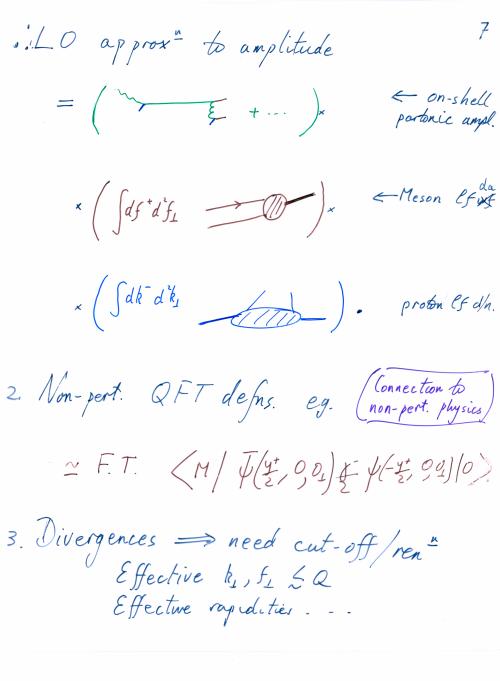 7
∴ LO approxⁿ to amplitude
= ( + ··· )×
← on-shell
partonic ampl.
× ( ∫df⁺d²f⊥ )×
← Meson lf da
× ( ∫dk⁻d²k⊥ ) .
proton lf d/n.
2. Non-pert. QFT defns. eg.
(Connection to
non-pert. physics)
≃ F.T. <M| ψ̄(y⁺/2, 0, 0⊥) ψ(-y⁺/2, 0, 0⊥)|0>.
3. Divergences ⟹ need cut-off/renⁿ
Effective k⊥, f⊥ ≲ Q
Effective rapidities . . .